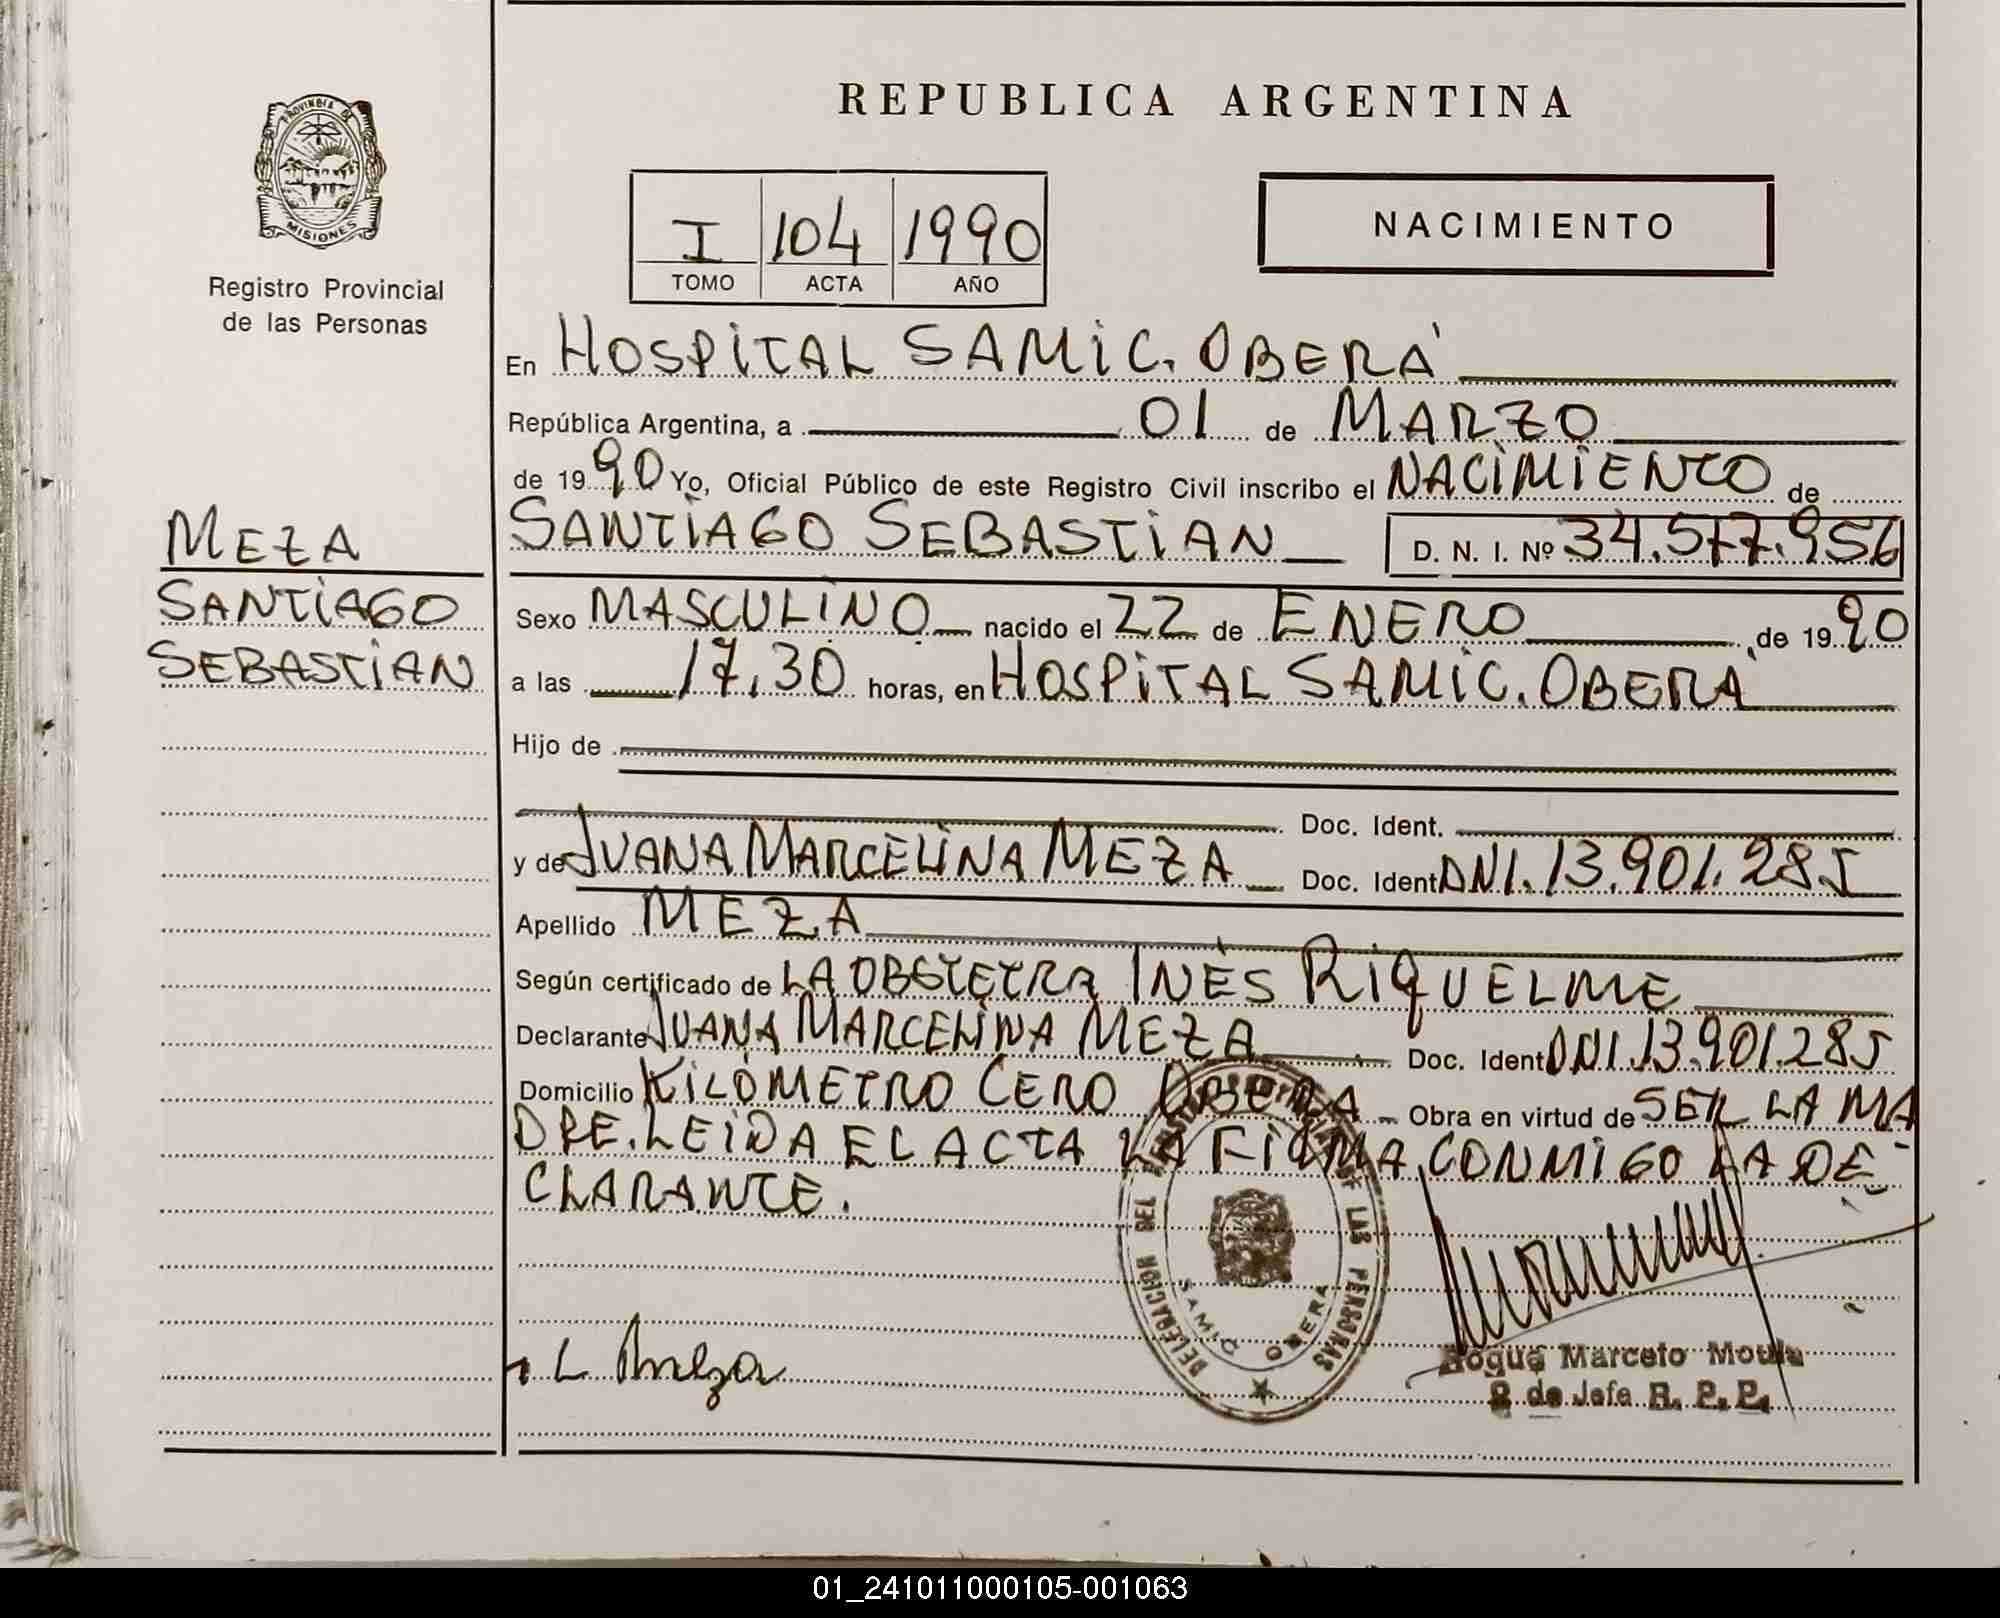 REPUBLICA ARGENTINA
PROVINCIA DE
MISIONES
Registro Provincial
de las Personas
I 104 1990
TOMO ACTA AÑO
NACIMIENTO
En HOSPITAL SAMIC. OBERÁ
República Argentina, a 01 de MARZO
de 1990 Yo, Oficial Público de este Registro Civil inscribo el NACIMIENTO de
SANTIAGO SEBASTIAN D. N. I. Nº 34.577.956
MEZA
SANTIAGO
SEBASTIAN
Sexo MASCULINO nacido el 22 de ENERO de 1990
a las 17,30 horas, en HOSPITAL SAMIC. OBERÁ
Hijo de
Doc. Ident.
y de JUANA MARCELINA MEZA Doc. Ident DNI. 13.901.285
Apellido MEZA
Según certificado de LA OBSTETRA INÉS RIQUELME
Declarante JUANA MARCELINA MEZA Doc. Ident DNI. 13.901.285
Domicilio KILÓMETRO CERO OBERA Obra en virtud de SER LA MA
DRE. LEIDA EL ACTA LA FIRMA CONMIGO LA DE-
CLARANTE.
DELEGACION DEL REGISTRO PROVINCIAL DE LAS PERSONAS
SAMIC OBERA
L Meza
Roque Marcelo
2 de Jefe R. P. P.
01_241011000105-001063